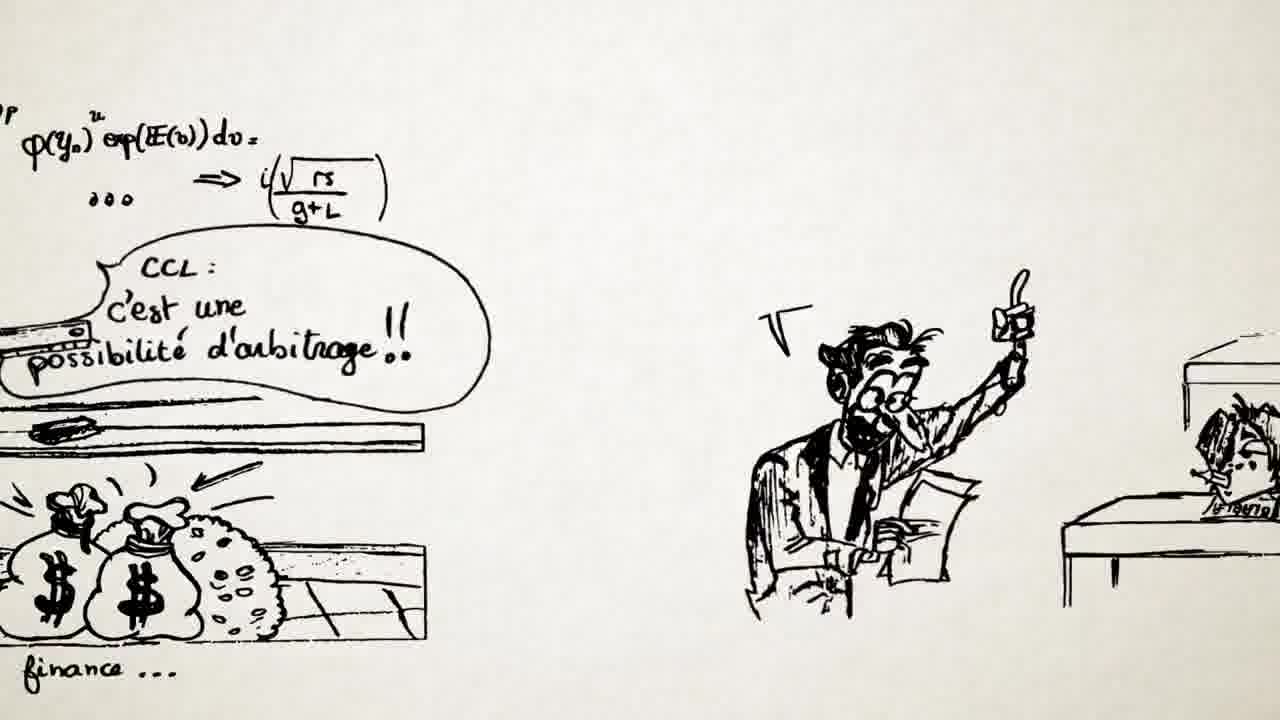 φ(y₀)ᵘ exp(E(v))dv =
... ⇒ i(√rs / g+L)
CCL :
c'est une
possibilité d'arbitrage !!
$ $
finance ...